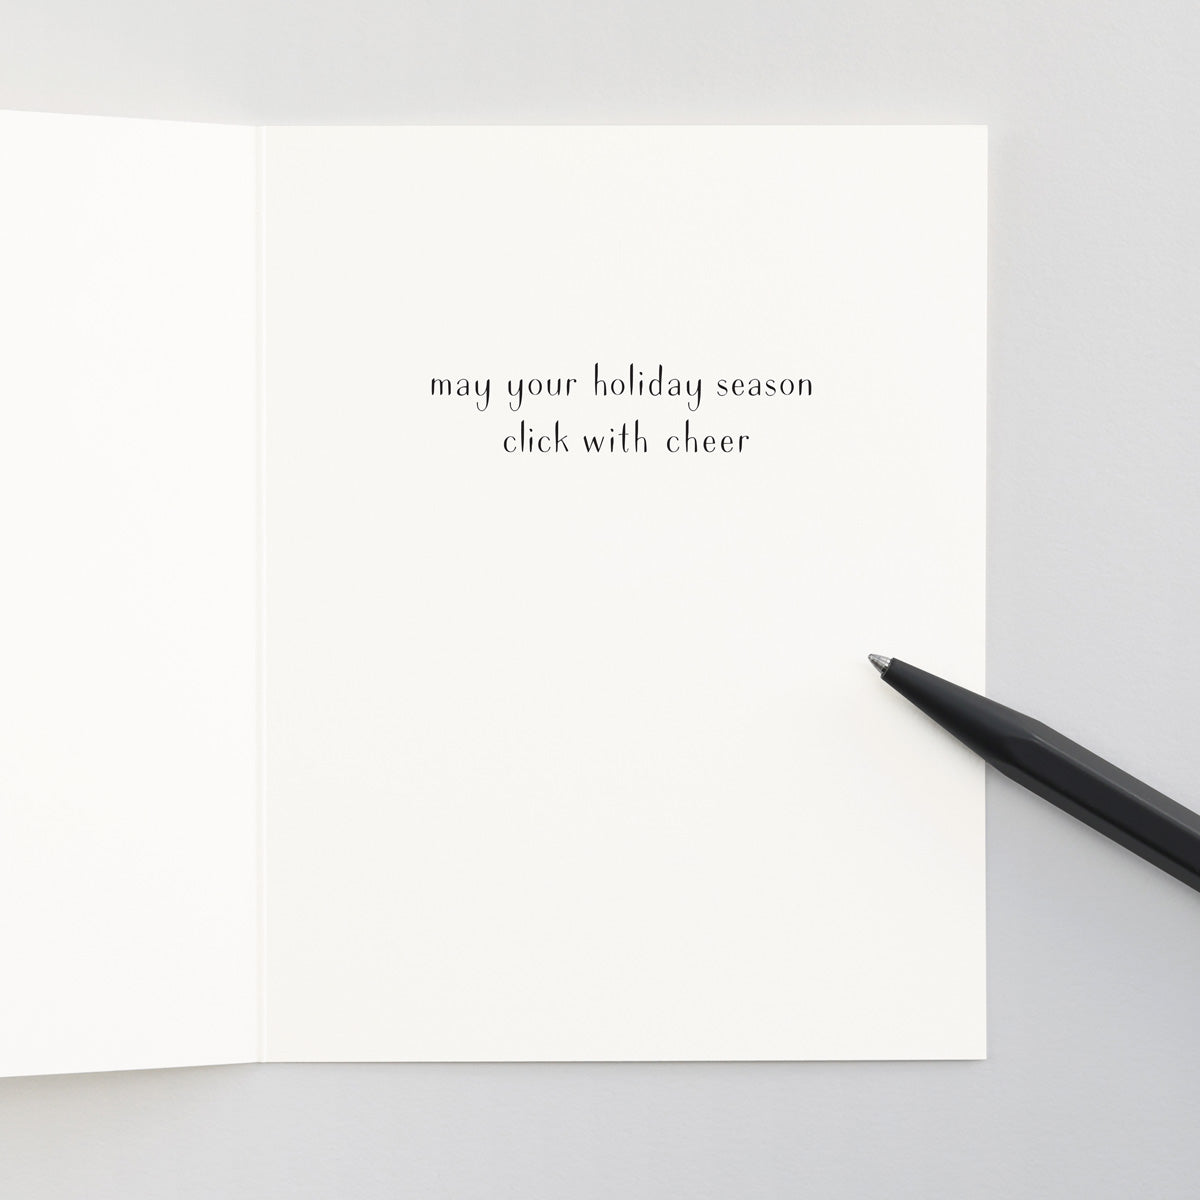 may your holiday season
click with cheer